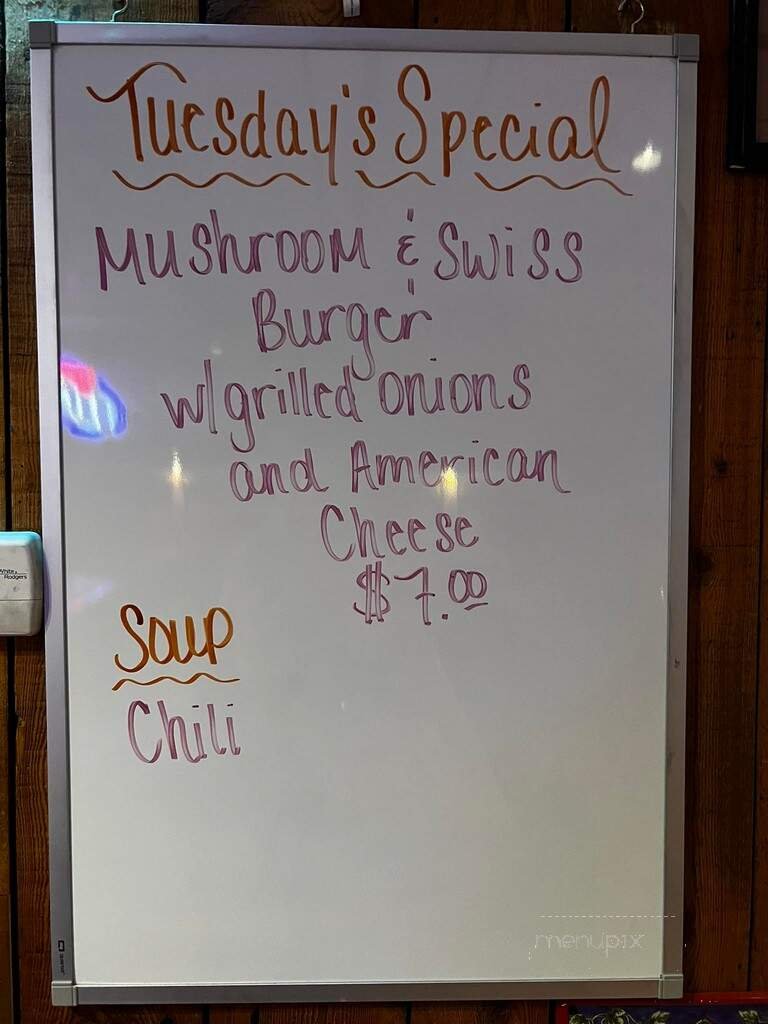 Tuesday's Special
Mushroom & Swiss
Burger
w/grilled onions
and American
Cheese
$7.00
Soup
Chili
White
Rodgers
menupix